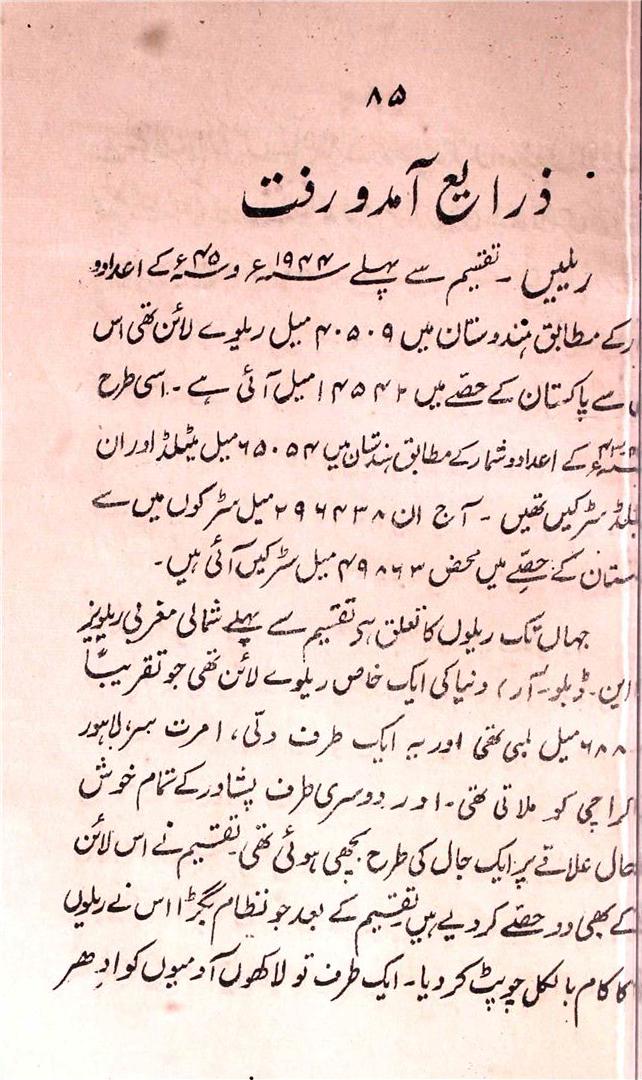 ۸۵
ذرایع آمدورفت
ریلیں ۔ تقسیم سے پہلے ۱۹۴۴ء و ۴۵ء کے اعداد و
ر کے مطابق ہندوستان میں ۴۰۵۰۹ میل ریلوے لائن تھی اس
سے پاکستان کے حصّے میں ۱۴۵۴۲ میل آئی ہے ۔ اسی طرح
کے اعداد و شمار کے مطابق ہندستان میں ۶۵۰۵۴ میل میٹلڈ اور ان
سڑکیں تھیں ۔ آج ان ۲۹۶۴۳۸ میل سڑکوں میں سے
ستان کے حصّے میں محض ۴۹۸۶۳ میل سڑکیں آئی ہیں ۔
جہاں تک ریلوں کا تعلق ہے تقسیم سے پہلے شمالی مغربی ریلویز
این ۔ ڈبلو ۔ آر) دنیا کی ایک خاص ریلوے لائن تھی جو تقریباً
۶۸۸۰ میل لمبی تھی اور یہ ایک طرف دلّی، امرت سر، لاہور
کراچی کو ملاتی تھی ۔ اور دوسری طرف پشاور کے تمام خوش
حال علاقے پر ایک جال کی طرح بچھی ہوئی تھی۔ تقسیم نے اس لائن
کے بھی دو حصّے کر دیے ہیں۔ تقسیم کے بعد جو نظام بگڑا اس نے ریلوں
کا کام بالکل چوپٹ کر دیا ۔ ایک طرف تو لاکھوں آدمیوں کو ادھر